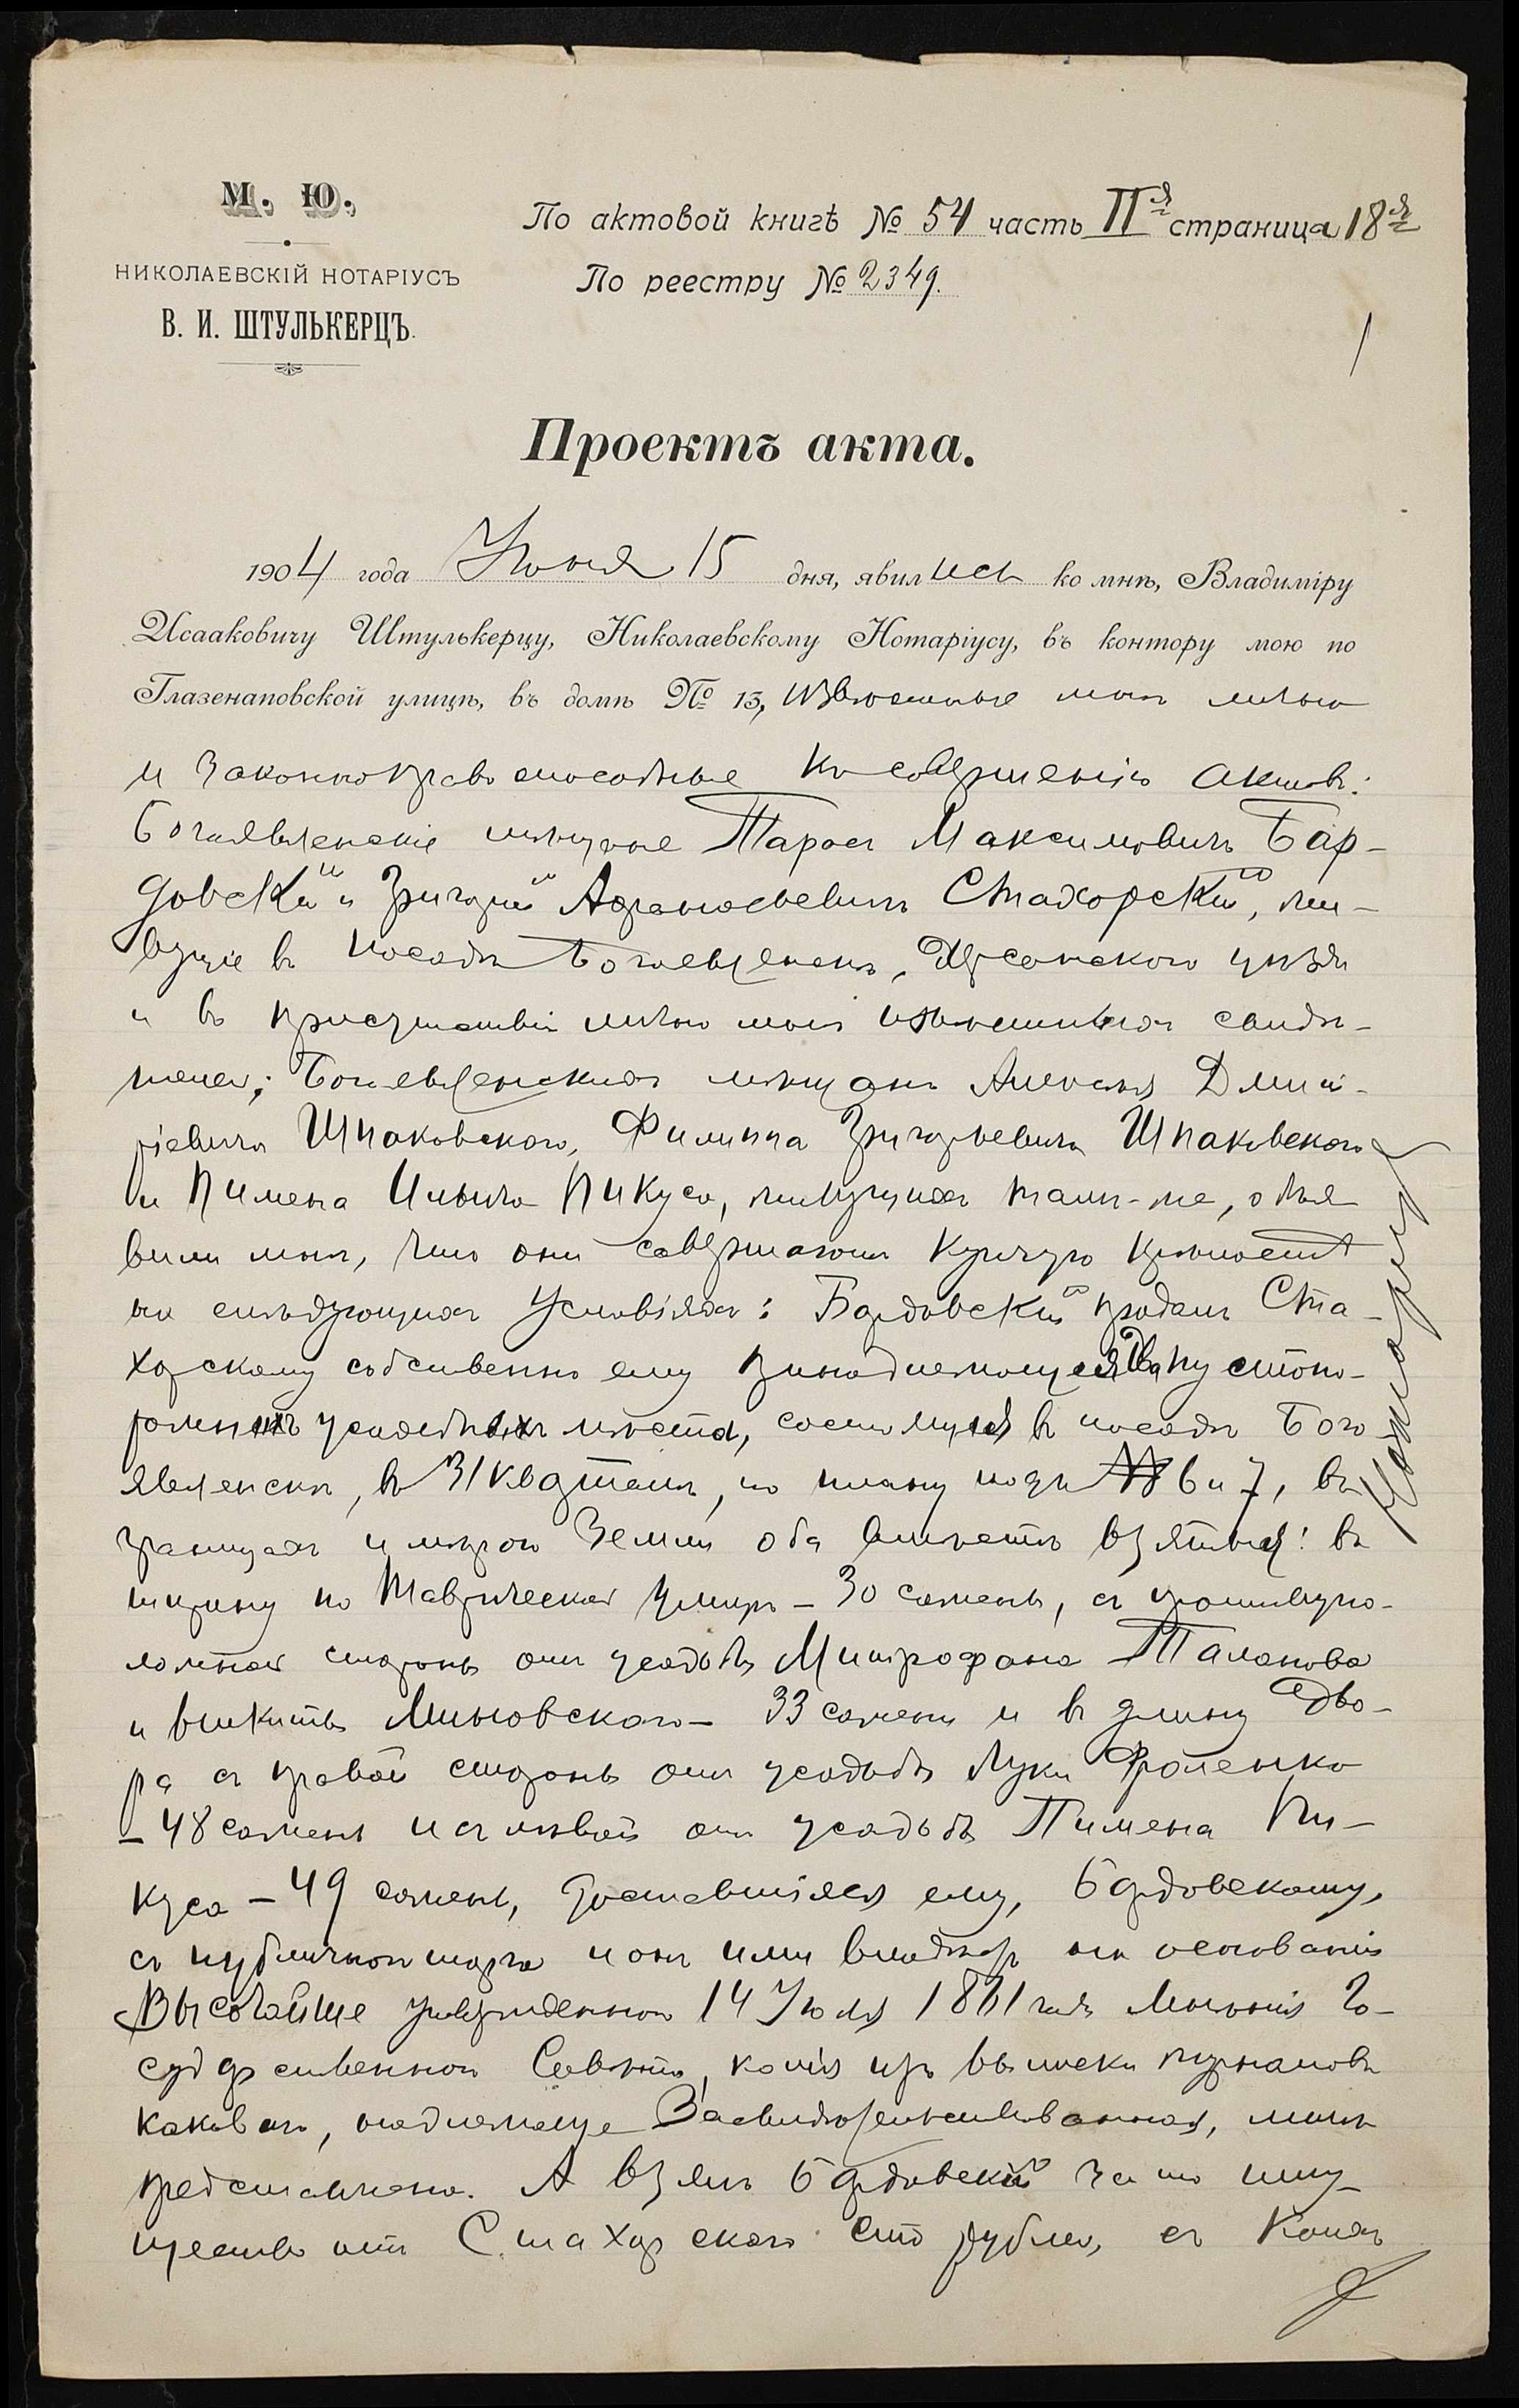 М. Ю.
НИКОЛАЕВСКІЙ НОТАРІУСЪ
В. И. ШТУЛЬКЕРЦЪ.
По актовой книгѣ № 54 часть II я страница 18 я
По реестру № 2349.
1
Проектъ акта.
1904 года Іюня 15 дня, явились ко мнѣ, Владиміру
Исааковичу Штулькерцу, Николаевскому Нотаріусу, въ контору мою по
Глазенаповской улицѣ, въ домѣ № 13, извѣстные мнѣ лично
и законноправоспособные къ совершенію актовъ:
Богоявленскіе мѣщане Тарасъ Максимовичъ Бар-
довскій и Григорій Афанасьевичъ Стахорскій, жи-
вущіе въ посадѣ Богоявленскѣ, Херсонскаго уѣзда
и въ присутствіи лично мнѣ извѣстныхъ свидѣ-
телей: Богоявленскихъ мѣщанъ Алексѣя Дмит-
ріевича Шпаковскаго, Филиппа Григорьевича Шпаковскаго
и Пимена Ильича Пикуса, живущихъ тамъ-же, объя
вили мнѣ, что они совершаютъ купчую крѣпость
на слѣдующихъ условіяхъ: Бардовскій продалъ Ста-
хорскому собственно ему принадлежащія два пустопо-
рожнихъ усадебныхъ мѣста, состоящія въ посадѣ Бого
явленскѣ, въ 31 кварталѣ, по плану подъ №№ 6 и 7, въ
границахъ и мѣрою земли оба вмѣстѣ взятыя: въ
ширину по Таврической улицѣ - 30 сажень, съ противупо-
ложной стороны отъ усадьбы Митрофана Таланова
и Миновскаго - 33 сажени и въ длину дво-
ра съ правой стороны отъ усадьбы Луки Фроленко
- 48 сажень и съ лѣвой отъ усадьбы Пимена Пи-
куса - 49 сажень, доставшіяся ему, Бардовскому,
съ публичнаго торга и онъ ими владѣетъ на основаніи
Высочайше утвержденнаго 14 Іюля 18 1 года Мнѣнія Го-
сударственнаго Совѣта, копія изъ выписки журналовъ
каковаго, надлежаще засвидѣтельствованная, мнѣ
представлена. А взялъ Бардовскій за то иму-
щество отъ Стахорскаго сто рублей, съ коихъ
Нотаріусъ